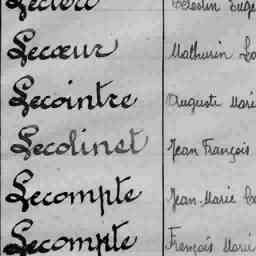 Leclerc Célestin Eugè
Lecœur Mathurin Lo
Lecointre Auguste Marie
Lecolinet Jean François
Lecompte Jean-Marie
Lecompte François Marie